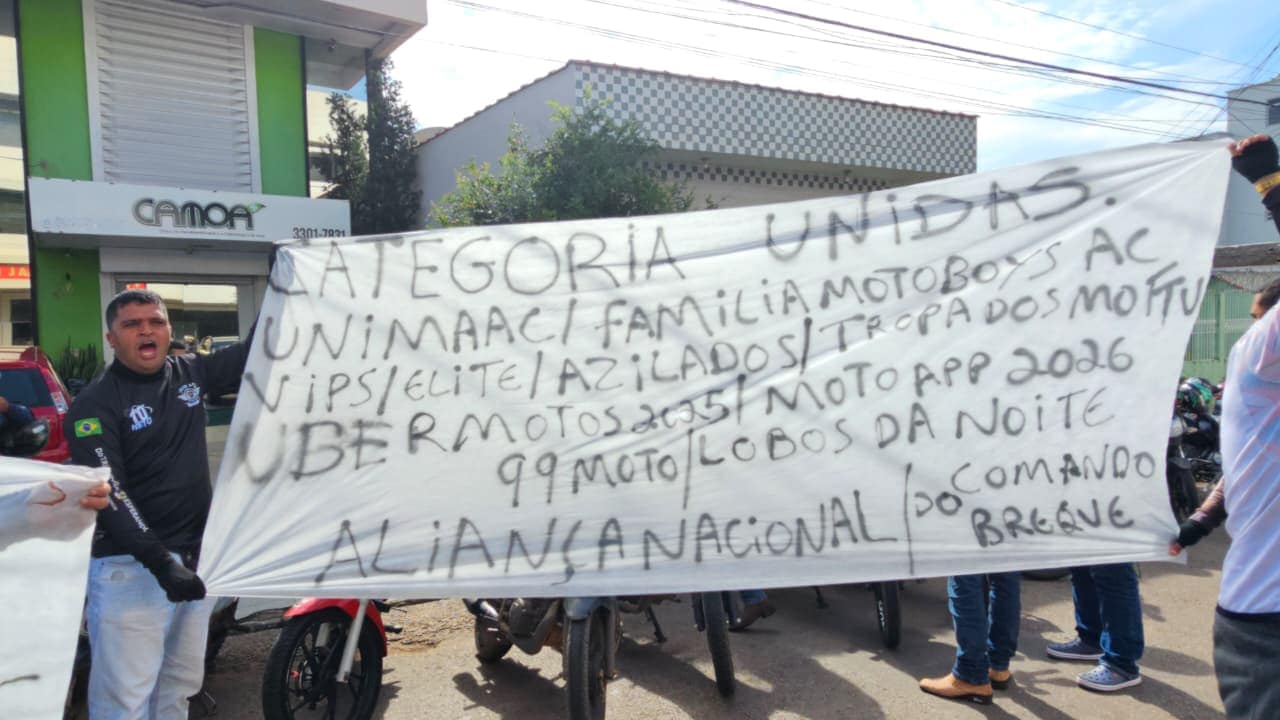 CAMOA
3301-7831
CATEGORIA UNIDAS.
UNIMAAC/FAMILIA MOTOBOYS AC
VIPS/ELITE/AZILADOS/TROPA DOS MOTTU
UBER MOTOS 2025/MOTO APP 2026
99 MOTO/LOBOS DA NOITE
ALIANÇA NACIONAL/DO COMANDO
BREQUE
NETO